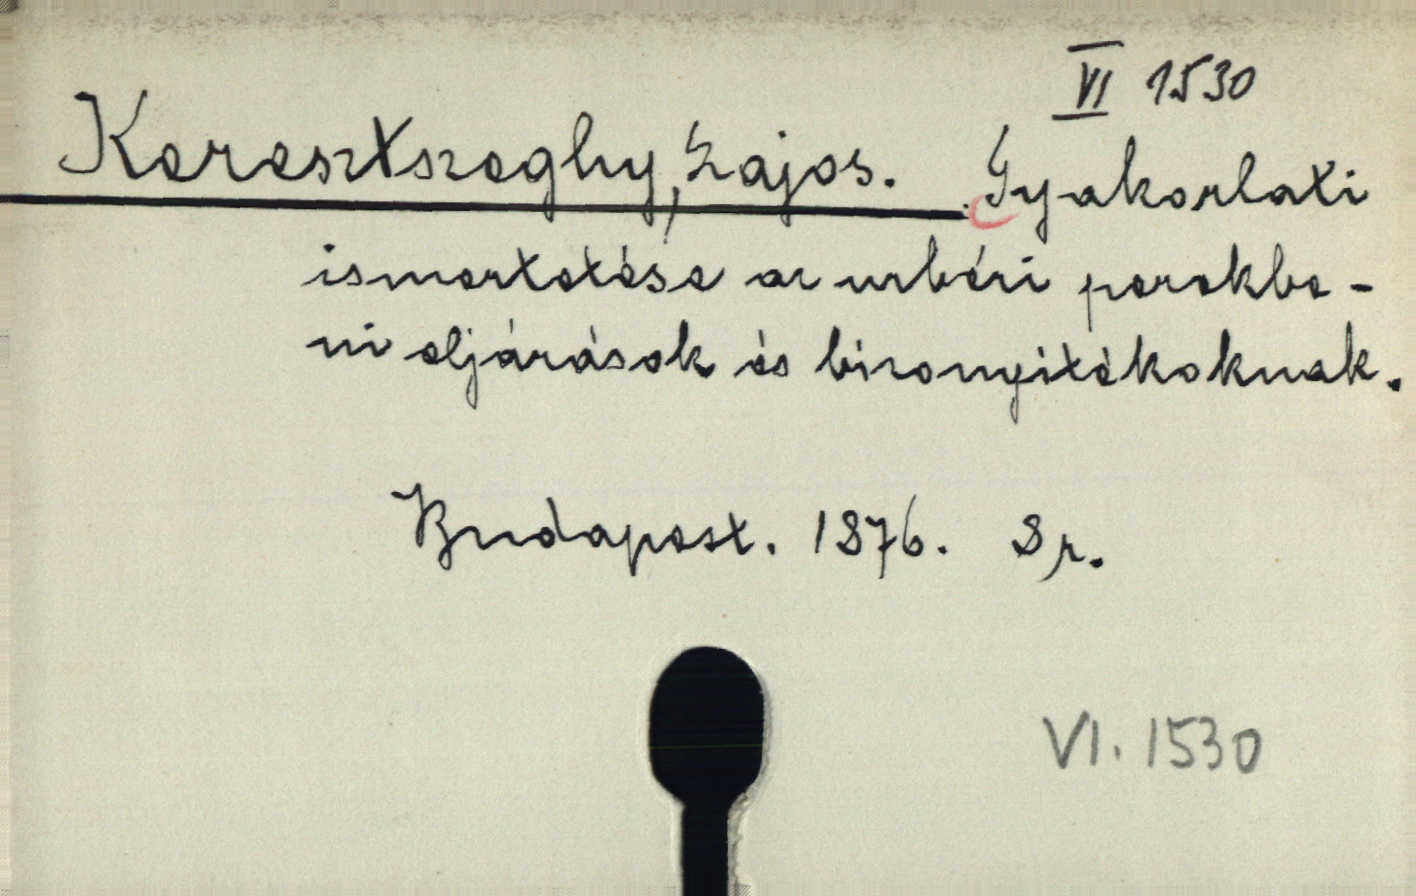 VI 1530
Keresztszeghy, Lajos. Gyakorlati
ismertetése az urbéri perekbe-
ni eljárások és bizonyitékoknak.
Budapest. 1876. 8r.
VI. 1530